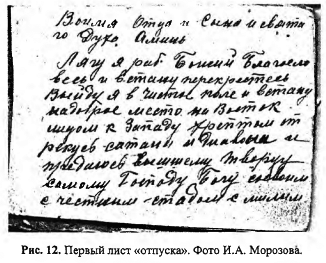 Воимя Отца и Сына и свята
го Духа. Аминь
Лягу я раб Божий Благосло
весь и встану перекрестесь
Выйду я в чистое поле и встану
на доброе место на Восток
лицом к Западу хрептом от
рекусь сатаны и диавола и
предаюсь вышшему творцу
самому Господу Богу
с честным стадом с милым
Рис. 12. Первый лист «отпуска». Фото И.А. Морозова.